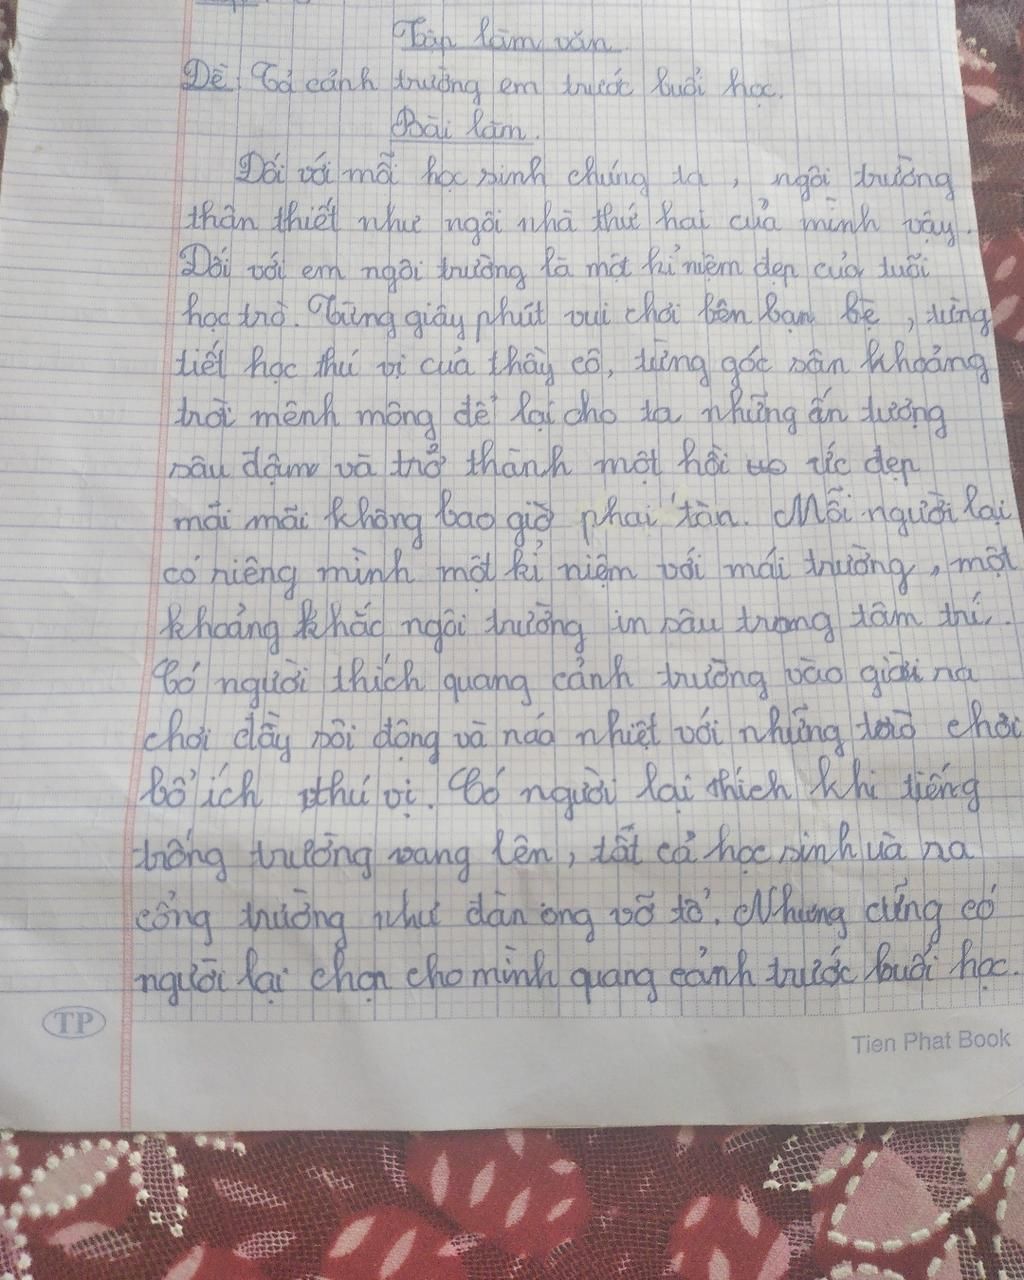 Tập làm văn
Đề: Tả cảnh trường em trước buổi học.
Bài làm.
Đối với mỗi học sinh chúng ta, ngôi trường
thân thiết như ngôi nhà thứ hai của mình vậy.
Đối với em ngôi trường là một kỉ niệm đẹp của tuổi
học trò. Từng giây phút vui chơi bên bạn bè, từng
tiết học thú vị của thầy cô, từng góc sân khoảng
trời mênh mông để lại cho ta những ấn tượng
sâu đậm và trở thành một hồi ức đẹp
mãi mãi không bao giờ phai tàn. Mỗi người lại
có riêng mình một kỉ niệm với mái trường, một
khoảng khắc ngôi trường in sâu trong tâm trí.
Có người thích quang cảnh trường vào giời ra
chơi đầy sôi động và náo nhiệt với những trò chơi
bổ ích thú vị. Có người lại thích khi tiếng
trống trường vang lên, tất cả học sinh ùa ra
cổng trường như đàn ong vỡ tổ. Nhưng cũng có
người lại chọn cho mình quang cảnh trước buổi học.
TP
Tien Phat Book